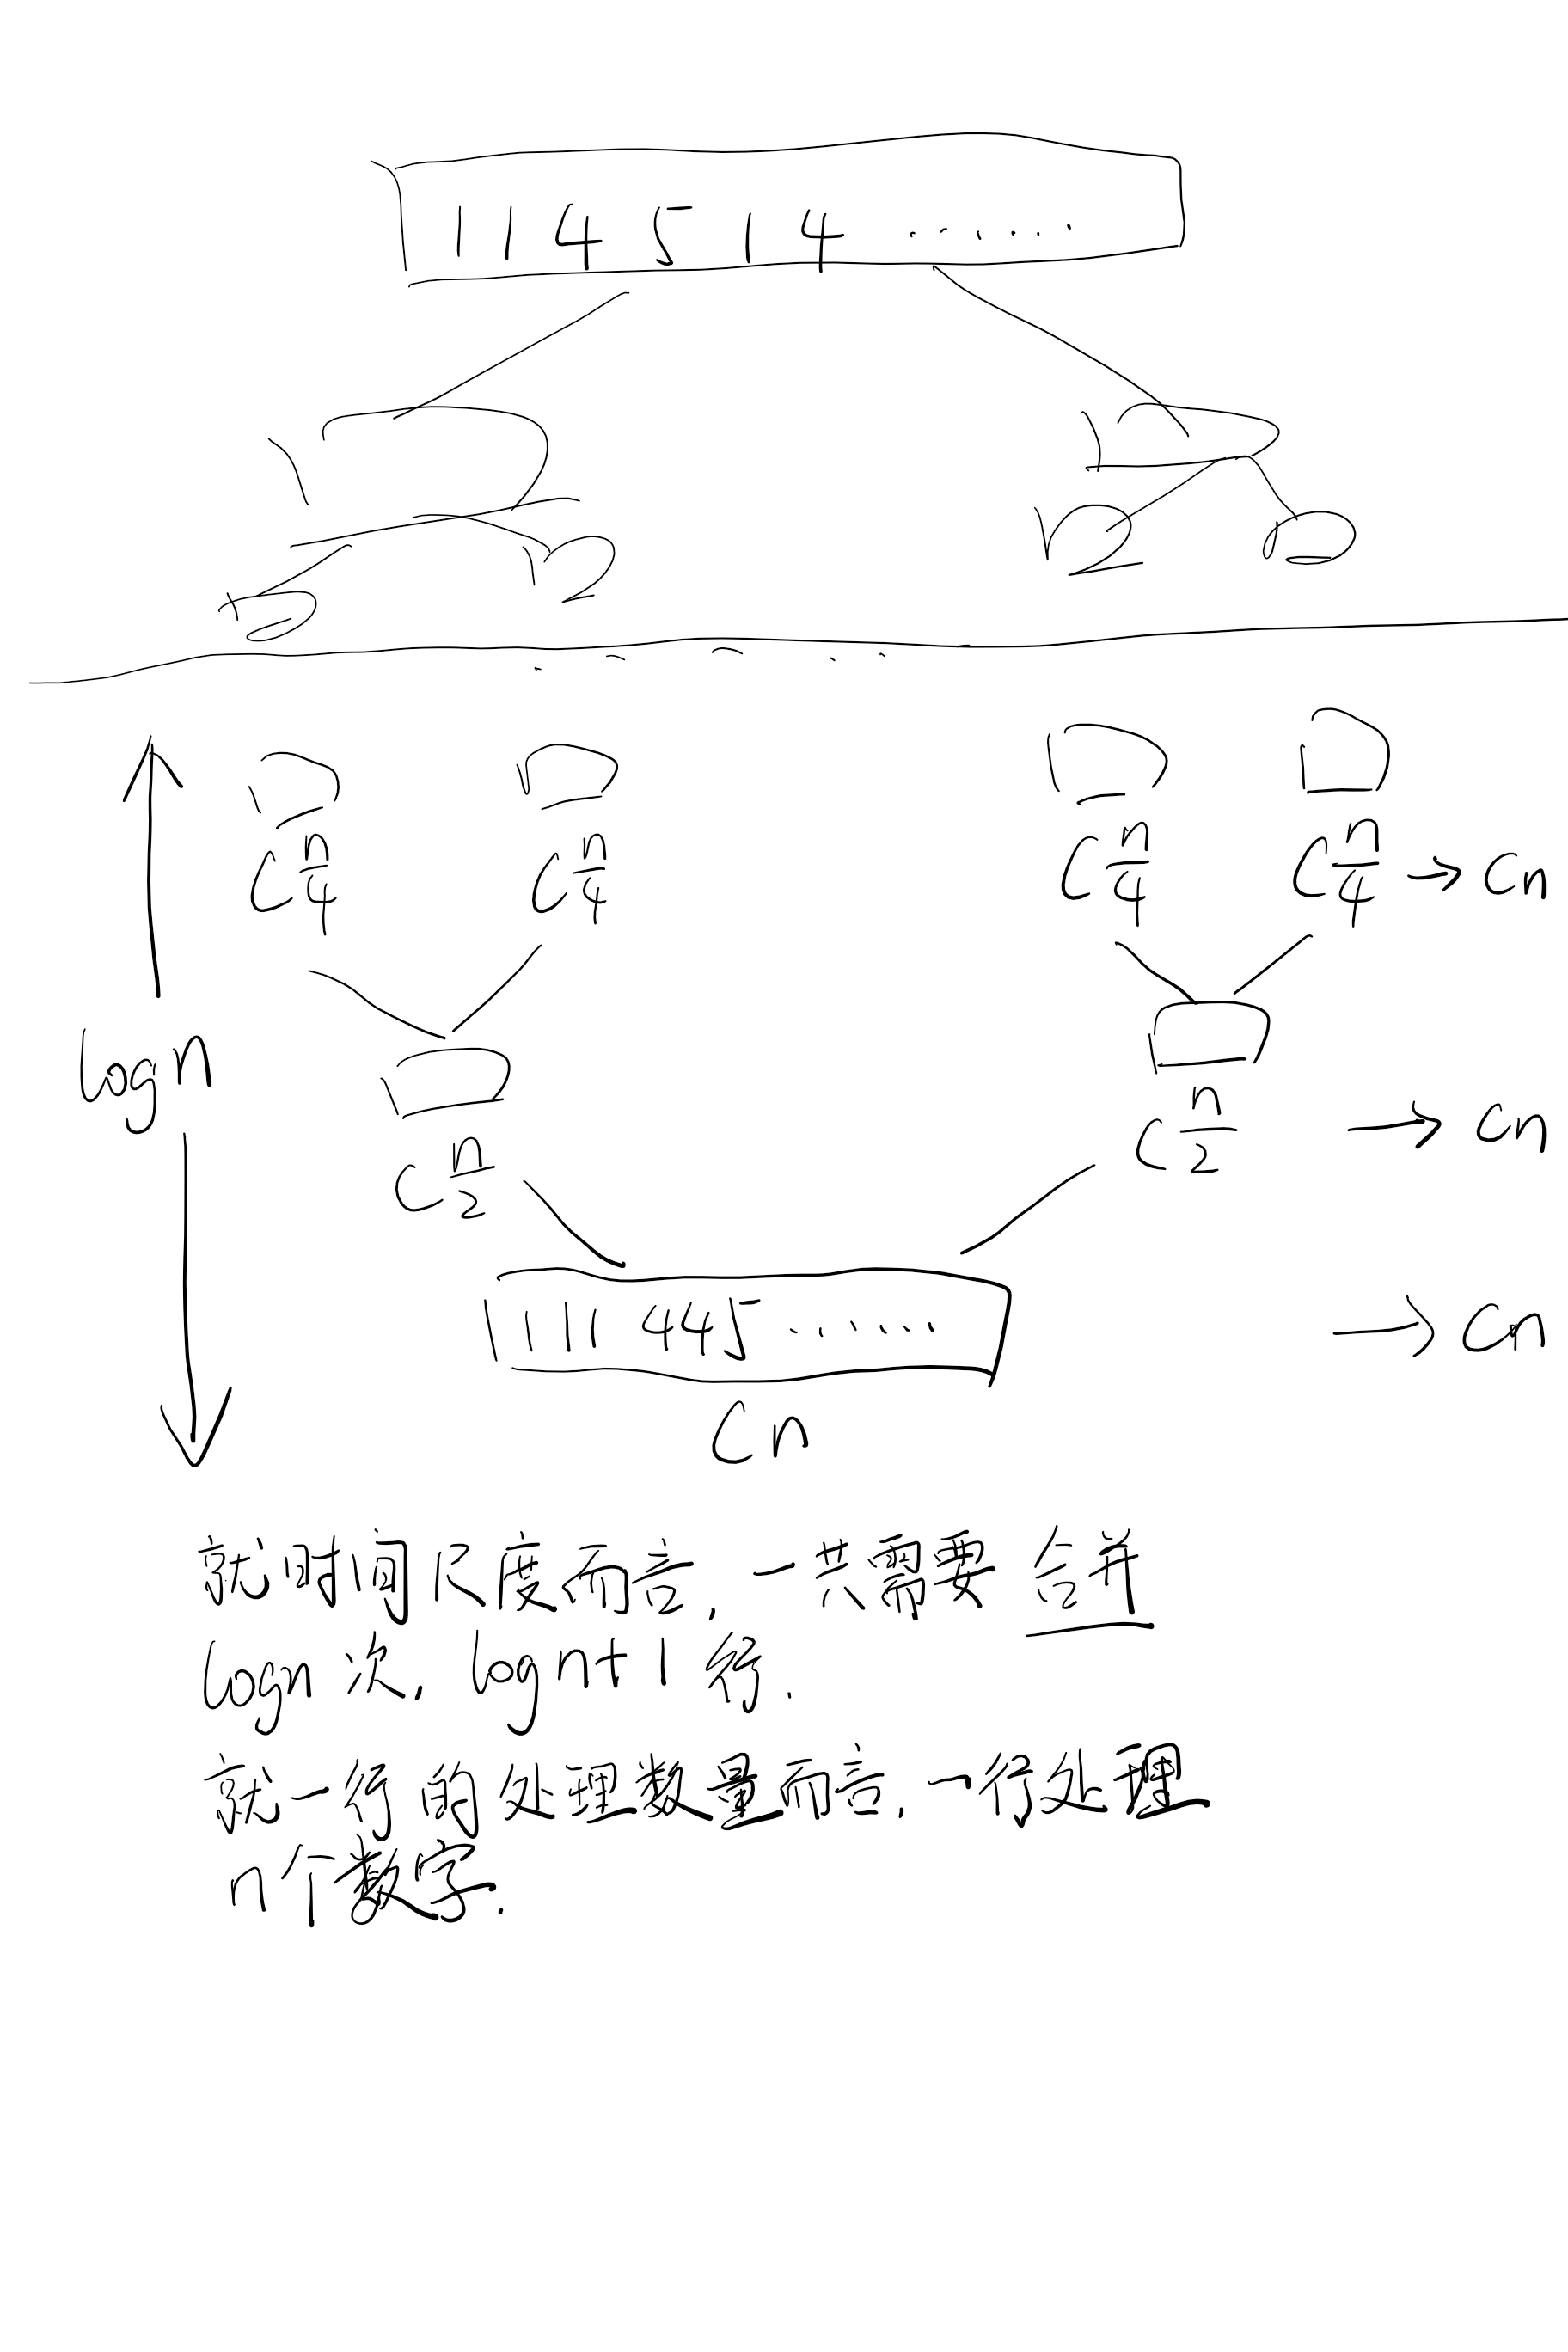 1 1 4 5 1 4 ......
C n/4 C n/4 C n/4 C n/4 → Cn
logn
C n/2 C n/2 → Cn
1 1 1 4 4 5 ...... → Cn
Cn
就时间尺度而言, 一共需要 合并
logn 次, logn+1 行.
就一行的处理数量而言, 一行处理
n个数字.